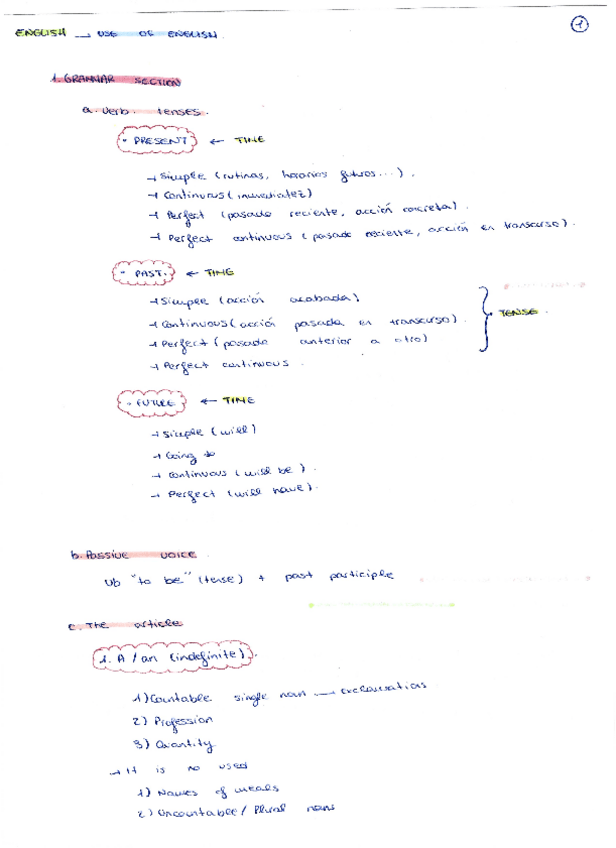 ENGLISH → USE OF ENGLISH.
1
1. GRAMMAR SECTION
a. Verb tenses.
· PRESENT ← TIME
→ Simple (rutinas, horarios futuros...).
→ Continuous (inmediatez)
→ Perfect (pasado reciente, acción concreta).
→ Perfect continuous (pasado reciente, acción en transcurso).
· PAST. ← TIME
→ Simple (acción acabada)
→ Continuous (acción pasada en transcurso).
→ Perfect (pasado anterior a otro)
→ Perfect continuous.
TENSE.
· FUTURE ← TIME
→ Simple (will)
→ Going to
→ Continuous (will be).
→ Perfect (will have).
b. Passive voice
Vb "to be" (tense) + past participle
c. The article
1. A / an (indefinite).
1) Countable single noun → exclamations
2) Profession
3) Quantity
→ It is no used
1) Names of meals
2) Uncountable / Plural nouns